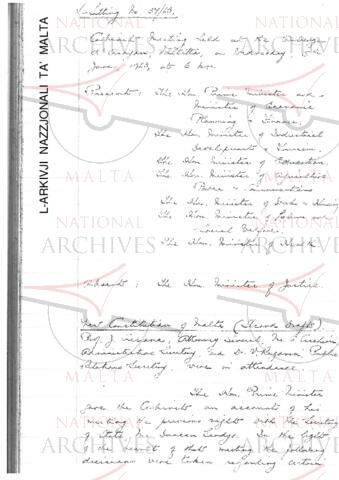 Sitting No. 59/63.
Cabinet Meeting held at the Auberge
d'Aragon, Valletta, on Wednesday,
June, 1963, at 6 p.m.
Present: The Hon. Prime Minister and
Minister of Economic
Planning & Finance.
The Hon. Minister of Industrial
Development & Tourism.
The Hon. Minister of Education.
The Hon. Minister of Agriculture
Power & Communications
The Hon. Minister of Works & Housing
The Hon. Minister of Labour and
Social Welfare.
The Hon. Minister of Health
Absent: The Hon. Minister of Justice.
New Constitution of Malta (Second Draft).
Prof. J. Attorney General, Mr.
Administrative Secretary and Dr. V. Ragonesi, Public
Relations Secretary, were in attendance.
The Hon. Prime Minister
gave the Cabinet an account of his
meeting the previous night with the Secretary
of State, Mr. Duncan Sandys. In the light
of the result of that meeting the following
decisions were taken regarding certain
L-ARKIVJI NAZZJONALI TA' MALTA
NATIONAL
ARCHIVES
MALTA